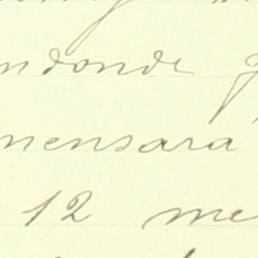 ndonde
mensara
12 me